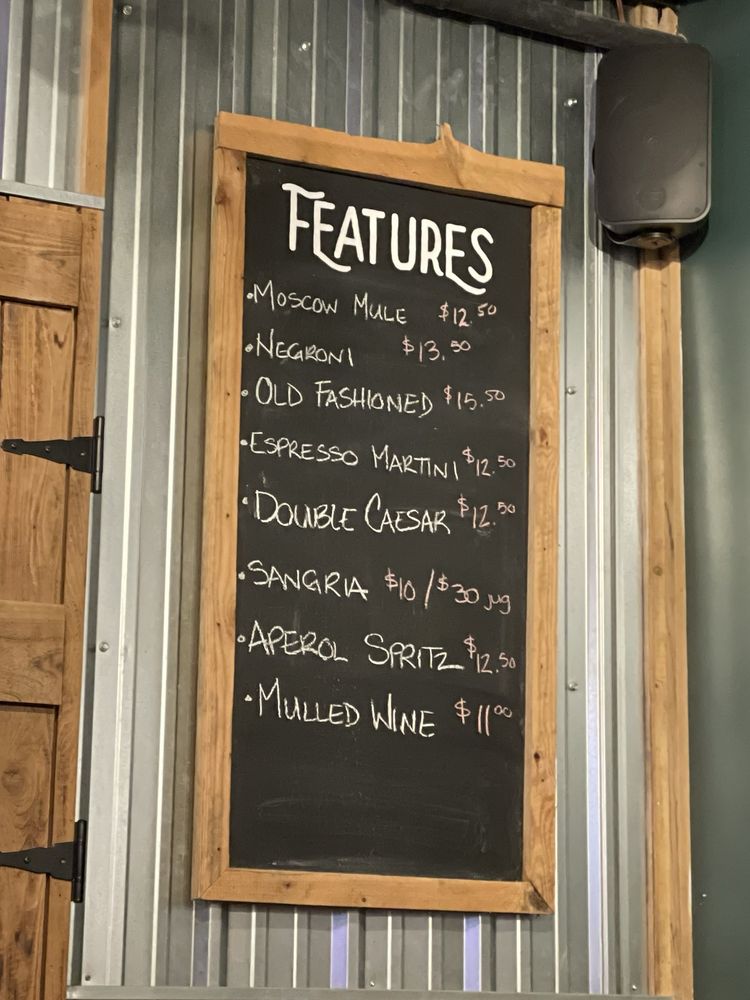 FEATURES
•MOSCOW MULE $12.50
•NEGRONI $13.50
•OLD FASHIONED $15.50
•ESPRESSO MARTINI $12.50
•DOUBLE CAESAR $12.50
•SANGRIA $10/$30 jug
•APEROL SPRITZ $12.50
•MULLED WINE $1100